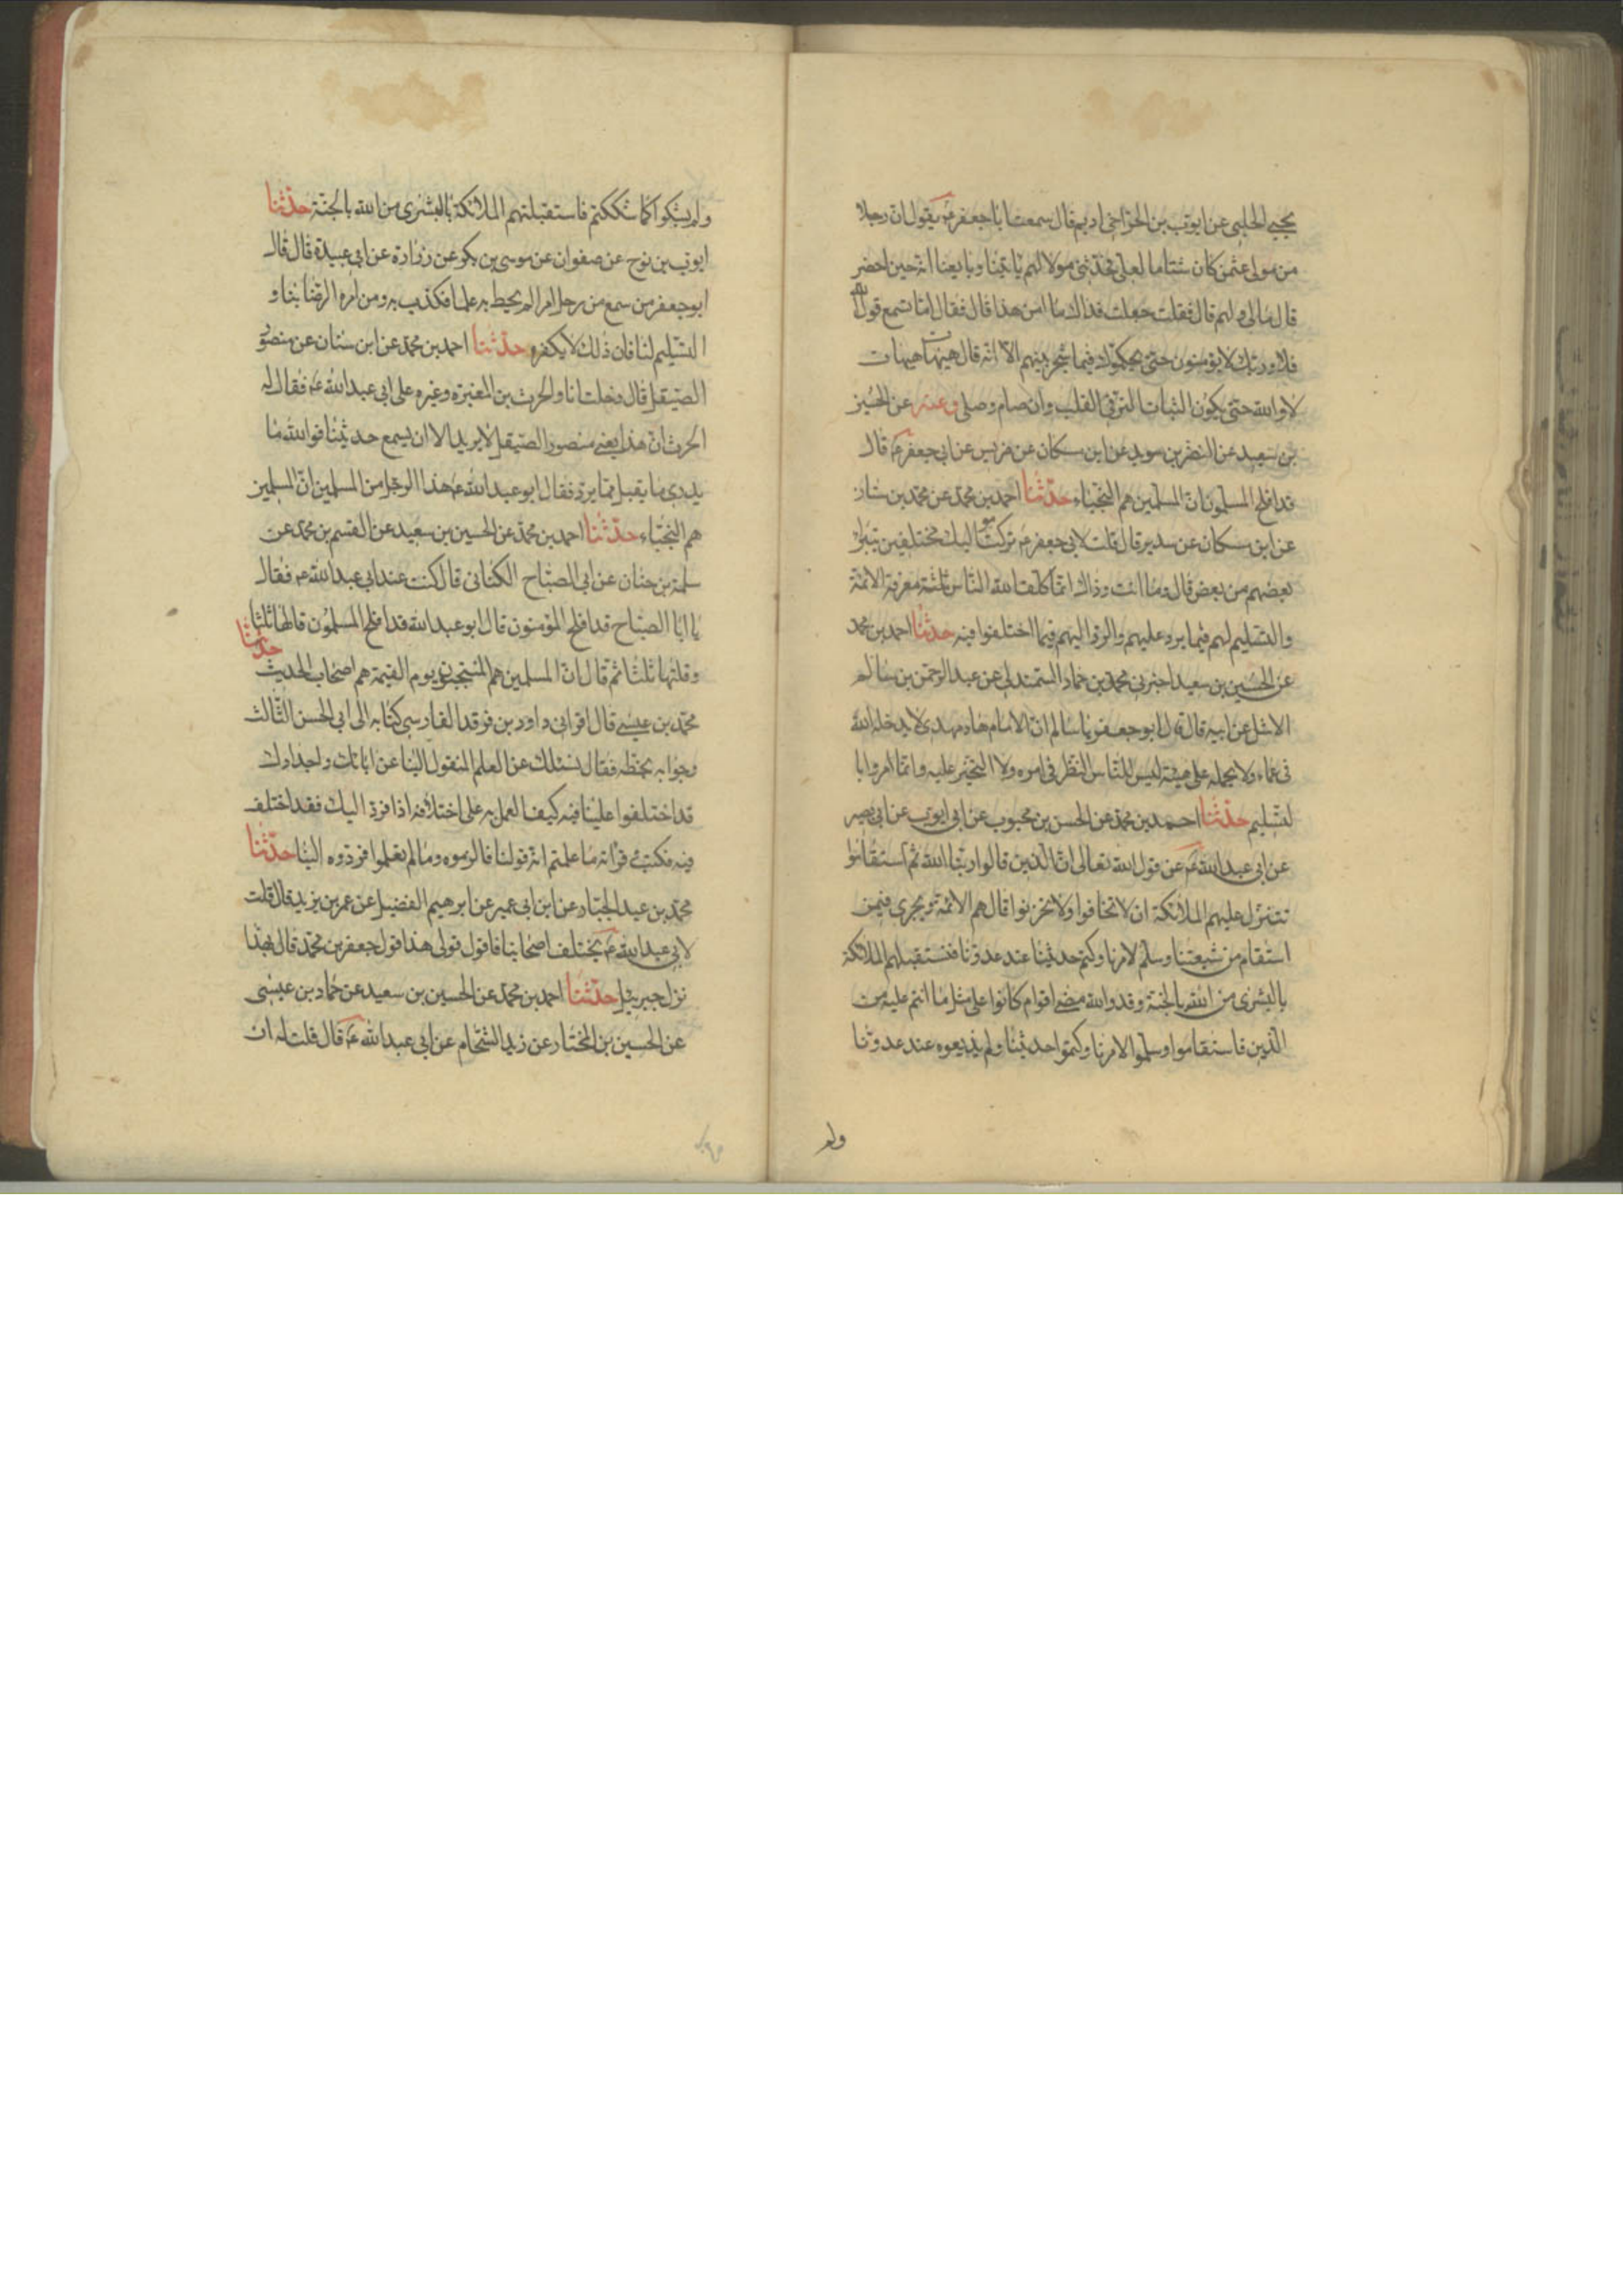 يحيى الحلبى عن ايوب بن الحر اخى اديم قال سمعت ابا جعفر ع يقول ان رجلا
من مولى عثمن كان شتاما لعلى فحدثنى مولا لهم ياتينا ويبايعنا انه حين احضر
قال مالى ولهم قال فقلت جعلت فداك ما امن هذا قال فقال اما تسمع قول الله
فلا وربك لا يؤمنون حتى يحكموك فيما شجر بينهم الآ انه قال هيهات هيهات
لا والله حتى يكون الثبات الثوفى القلب وان صام وصلى وعنه عن الحسين
بن سعيد عن النضر بن سويد عن ابن مسكان عن ضريس عن ابى جعفر ع قال
قد افلح المسلمون ان المسلمين هم النجباء حدثنا احمد بن محمد عن محمد بن سنان
عن ابن مسكان عن سدير قال قلت لابى جعفر ع تركت مواليك مختلفين يتبرأ
بعضهم من بعض قال وما انت وذاك انما كلف الله الناس ثلثة معرفة الائمة
والتسليم لهم فيما يرد عليهم والرد اليهم فيما اختلفوا فيه حدثنا احمد بن محمد
عن الحسين بن سعيد اخبرنى محمد بن حماد السمندلى عن عبد الرحمن بن سالم
الاشل عن ابيه قال قال ابو جعفر يا سالم ان الامام هاد مهدى لا يدخله الله
فى عماء ولا يحمله على هيئة ليس للناس النظر فى امره ولا التخير عليه وانما امروا با
لتسليم حدثنا احمد بن محمد عن الحسن بن محبوب عن ابى ايوب عن ابى بصير
عن ابى عبد الله ع عن قول الله تعالى ان الذين قالوا ربنا الله ثم استقاموا
تتنزل عليهم الملائكة ان لا تخافوا ولا تحزنوا قال هم الائمة ويجرى فيمن
استقام من شيعتنا وسلم لامرنا وكتم حديثنا عند عدونا فتستقبلهم الملائكة
بالبشرى من الله بالجنة وقد والله مضى اقوام كانوا على مثل ما انتم عليه من
الذين فاستقاموا وسلموا لامرنا وكتموا حديثنا ولم يذيعوه عند عدونا
ولم
ولم يشكوا كما شككتم فاستقبلتهم الملائكة بالبشرى من الله بالجنة حدثنا
ايوب بن نوح عن صفوان عن موسى بن بكر عن زرارة عن ابى عبيدة قال قال
ابو جعفر من سمع من رجل امرا لم يحط به علما فكذب به ومن امره الرضا بنا و
التسليم لنا فان ذلك لا يكفره حدثنا احمد بن محمد عن ابن سنان عن منصور
الصيقل قال دخلت انا والحرث بن المغيرة وغيره على ابى عبد الله ع فقال له
الحرث ان هذا يعنى منصور الصيقل لا يريد الا ان يسمع حديثنا فوالله ما
يدرى ما يقبل مما يرد فقال ابو عبد الله ع هذا الرجل من المسلمين ان المسلمين
هم النجباء حدثنا احمد بن محمد عن الحسين بن سعيد عن القسم بن محمد عن
سلمة بن حنان عن ابى الصباح الكنانى قال كنت عند ابى عبد الله ع فقال
يا ابا الصباح قد افلح المؤمنون قال ابو عبد الله قد افلح المسلمون قالها ثلثا
وقلتها ثلثا ثم قال ان المسلمين هم المنتجبون يوم القيمة هم اصحاب الحديث حدثنا
محمد بن عيسى قال اقرانى داود بن فرقد الفارسى كتابه الى ابى الحسن الثالث
وجوابه بخطه فقال نسئلك عن العلم المنقول الينا عن ابائك واجدادك
قد اختلفوا علينا فيه كيف العمل به على اختلافه اذا فرد اليك فقد اختلف
فيه فكتب وقراته ما علمتم انه قولنا فالزموه وما لم تعلموا فردوه الينا حدثنا
محمد بن عبد الجبار عن ابن ابى عمير عن ابرهيم الفضيل عن عمر بن يزيد قال قلت
لابى عبد الله ع يختلف اصحابنا فاقول قولى هذا قول جعفر بن محمد قال بهذا
نزل جبرئيل حدثنا احمد بن محمد عن الحسين بن سعيد عن حماد بن عيسى
عن الحسين بن المختار عن زيد الشحام عن ابى عبد الله ع قال قلت له ان